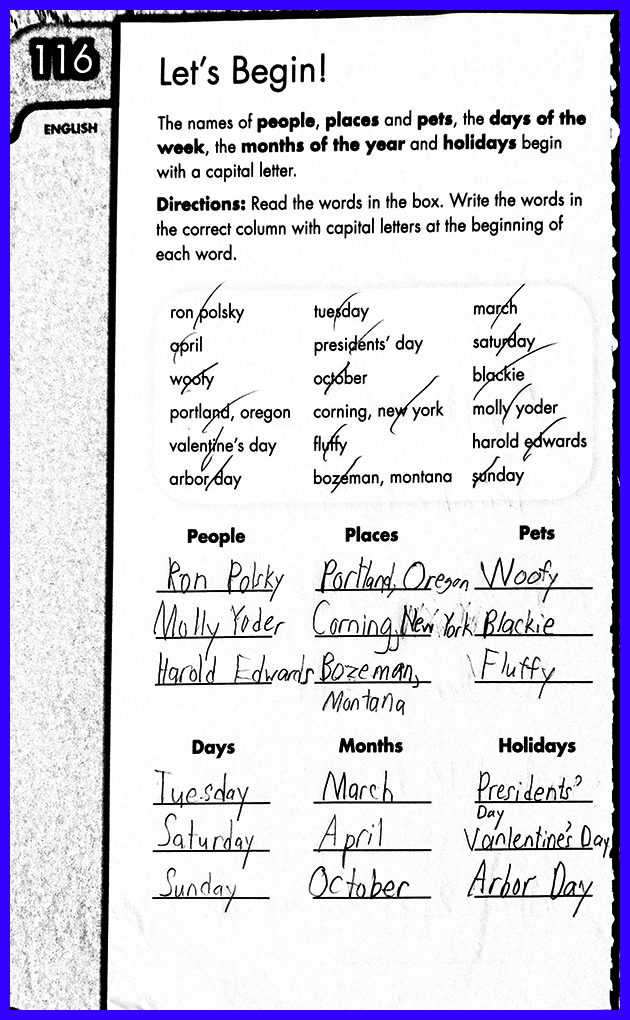 116
ENGLISH
Let's Begin!
The names of people, places and pets, the days of the
week, the months of the year and holidays begin
with a capital letter.
Directions: Read the words in the box. Write the words in
the correct column with capital letters at the beginning of
each word.
ron polsky tuesday march
april presidents' day saturday
woofy october blackie
portland, oregon corning, new york molly yoder
valentine's day fluffy harold edwards
arbor day bozeman, montana sunday
People Places Pets
Ron Polsky Portland, Oregon Woofy
Molly Yoder Corning, New York Blackie
Harold Edwards Bozeman, Fluffy
Montana
Days Months Holidays
Tuesday March Presidents'
Day
Saturday April Vanlentine's Day
Sunday October Arbor Day